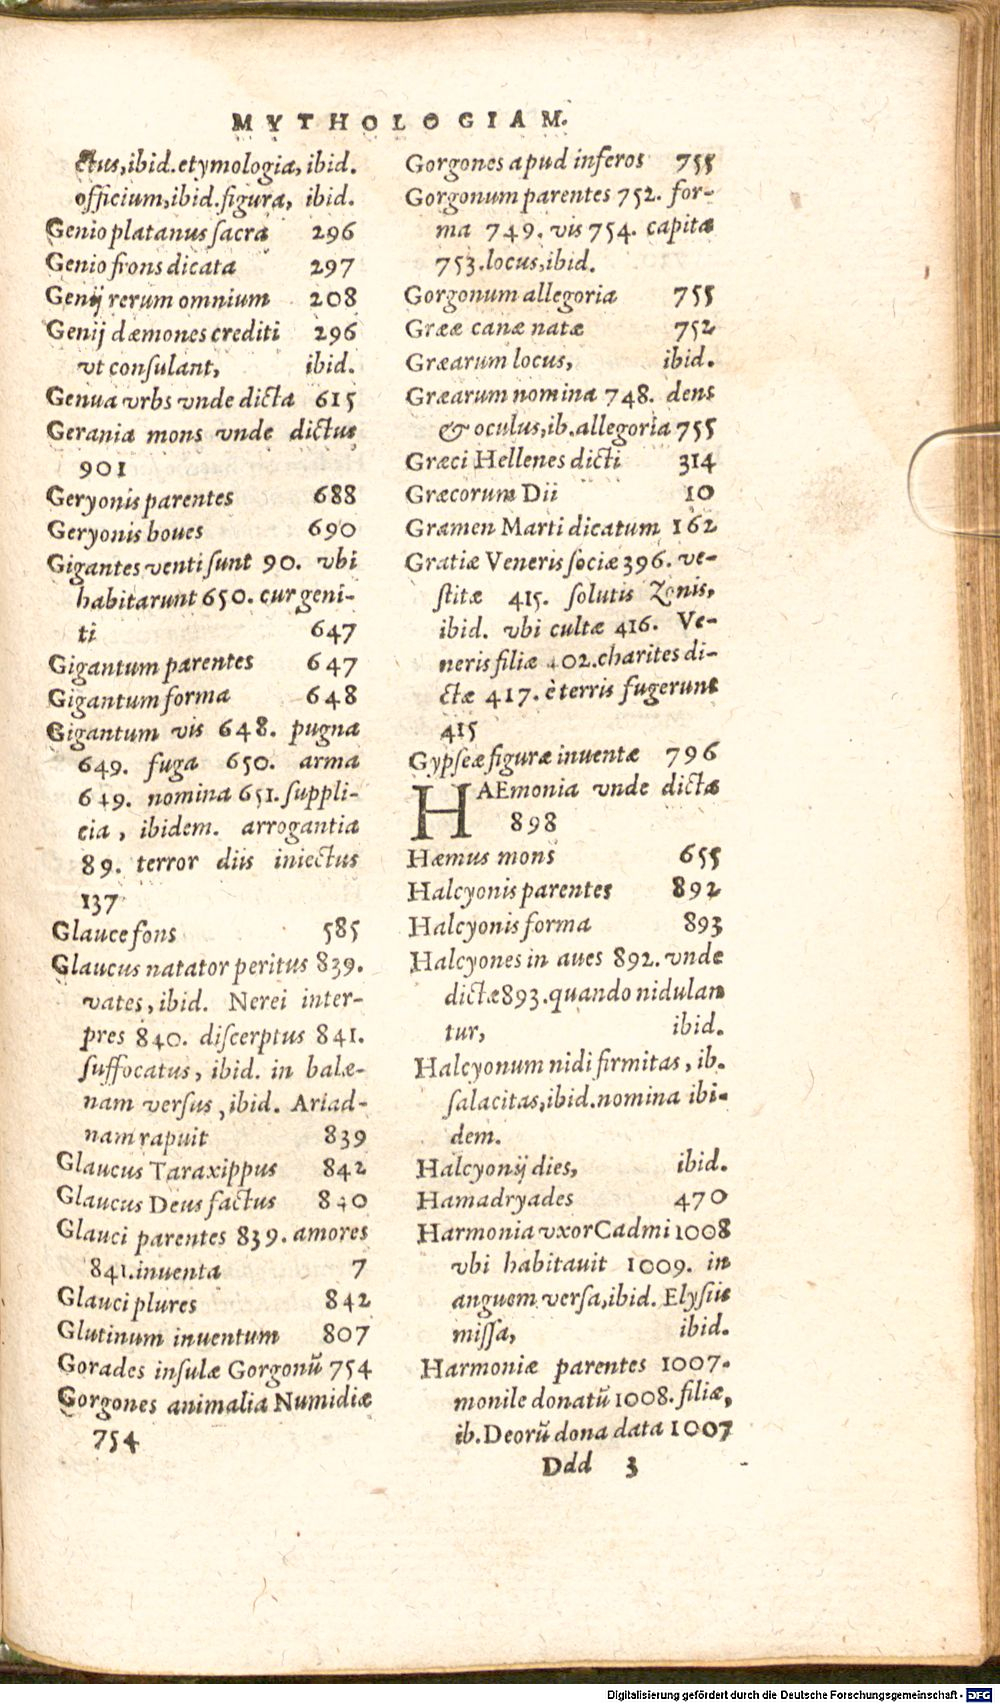 MYTHOLOGIAM.
ctus, ibid. etymologia, ibid.
officium, ibid. figura, ibid.
Genio platanus sacra 296
Genio frons dicata 297
Genij rerum omnium 208
Genij dæmones crediti 296
vt consulant, ibid.
Genua vrbs vnde dicta 615
Gerania mons vnde dictus
901
Geryonis parentes 688
Geryonis boues 690
Gigantes venti sunt 90. vbi
habitarunt 650. cur geni-
ti 647
Gigantum parentes 647
Gigantum forma 648
Gigantum vis 648. pugna
649. fuga 650. arma
649. nomina 651. suppli-
cia, ibidem. arrogantia
89. terror diis iniectus
137
Glauce fons 585
Glaucus natator peritus 839.
vates, ibid. Nerei inter-
pres 840. discerptus 841.
suffocatus, ibid. in balæ-
nam versus, ibid. Ariad-
nam rapuit 839
Glaucus Taraxippus 842
Glaucus Deus factus 840
Glauci parentes 839. amores
841. inuenta 7
Glauci plures 842
Glutinum inuentum 807
Gorades insulæ Gorgonũ 754
Gorgones animalia Numidiæ
754
Gorgones apud inferos 755
Gorgonum parentes 752. for-
ma 749. vis 754. capita
753. locus, ibid.
Gorgonum allegoria 755
Grææ canæ natæ 752
Græarum locus, ibid.
Græarum nomina 748. dens
& oculus, ib. allegoria 755
Græci Hellenes dicti 314
Græcorum Dii 10
Gramen Marti dicatum 162
Gratiæ Veneris sociæ 396. ve-
stitæ 415. solutis Zonis,
ibid. vbi cultæ 416. Ve-
neris filiæ 402. charites di-
ctæ 417. è terris fugerunt
415
Gypseæ figuræ inuentæ 796
HAEmonia vnde dicta
898
Hæmus mons 655
Halcyonis parentes 892
Halcyonis forma 893
Halcyones in aues 892. vnde
dictæ 893. quando nidulan
tur, ibid.
Halcyonum nidi firmitas, ib.
salacitas, ibid. nomina ibi-
dem.
Halcyonij dies, ibid.
Hamadryades 470
Harmonia vxor Cadmi 1008
vbi habitauit 1009. in
anguem versa, ibid. Elysiis
missa, ibid.
Harmoniæ parentes 1007.
monile donatũ 1008. filiæ,
ib. Deorũ dona data 1007
Ddd 3
Digitalisierung gefördert durch die Deutsche Forschungsgemeinschaft - DFG